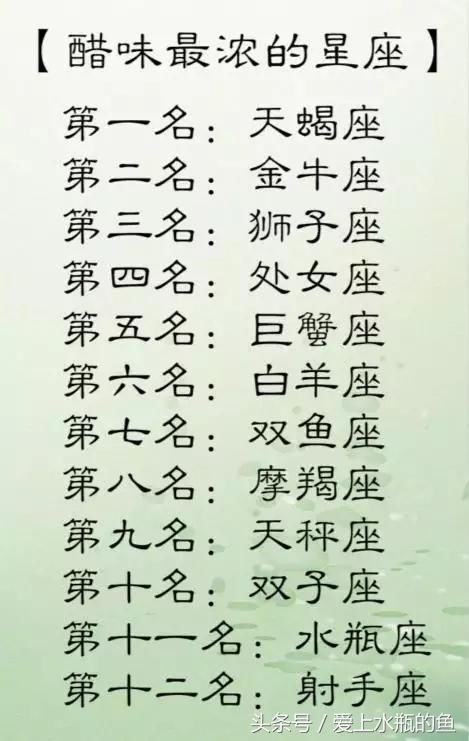 【醋味最浓的星座】
第一名：天蝎座
第二名：金牛座
第三名：狮子座
第四名：处女座
第五名：巨蟹座
第六名：白羊座
第七名：双鱼座
第八名：摩羯座
第九名：天秤座
第十名：双子座
第十一名：水瓶座
第十二名：射手座
头条号/爱上水瓶的鱼